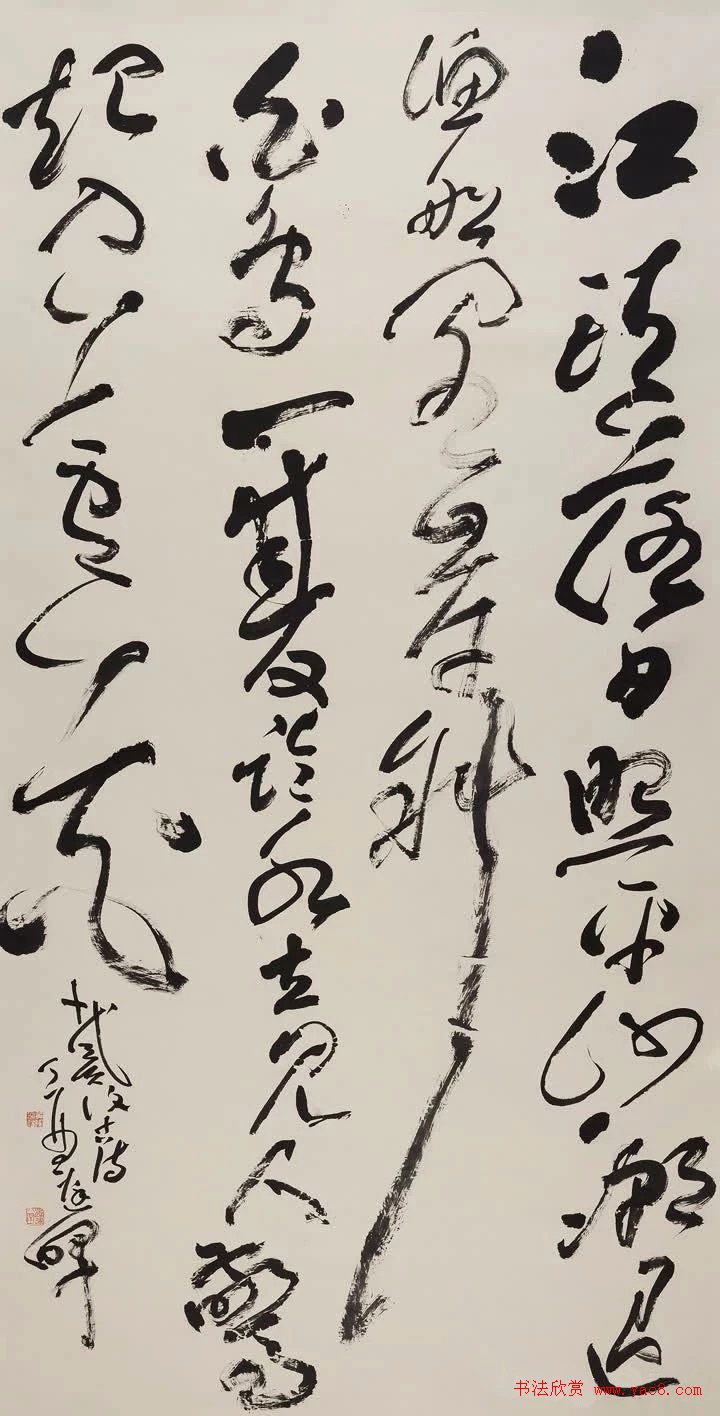 江頭落日照平沙潮退
漁船閣岸斜
白鳥一雙臨水立見人驚
起入蘆花
戴復古詩
书法欣赏 www.yac8.com